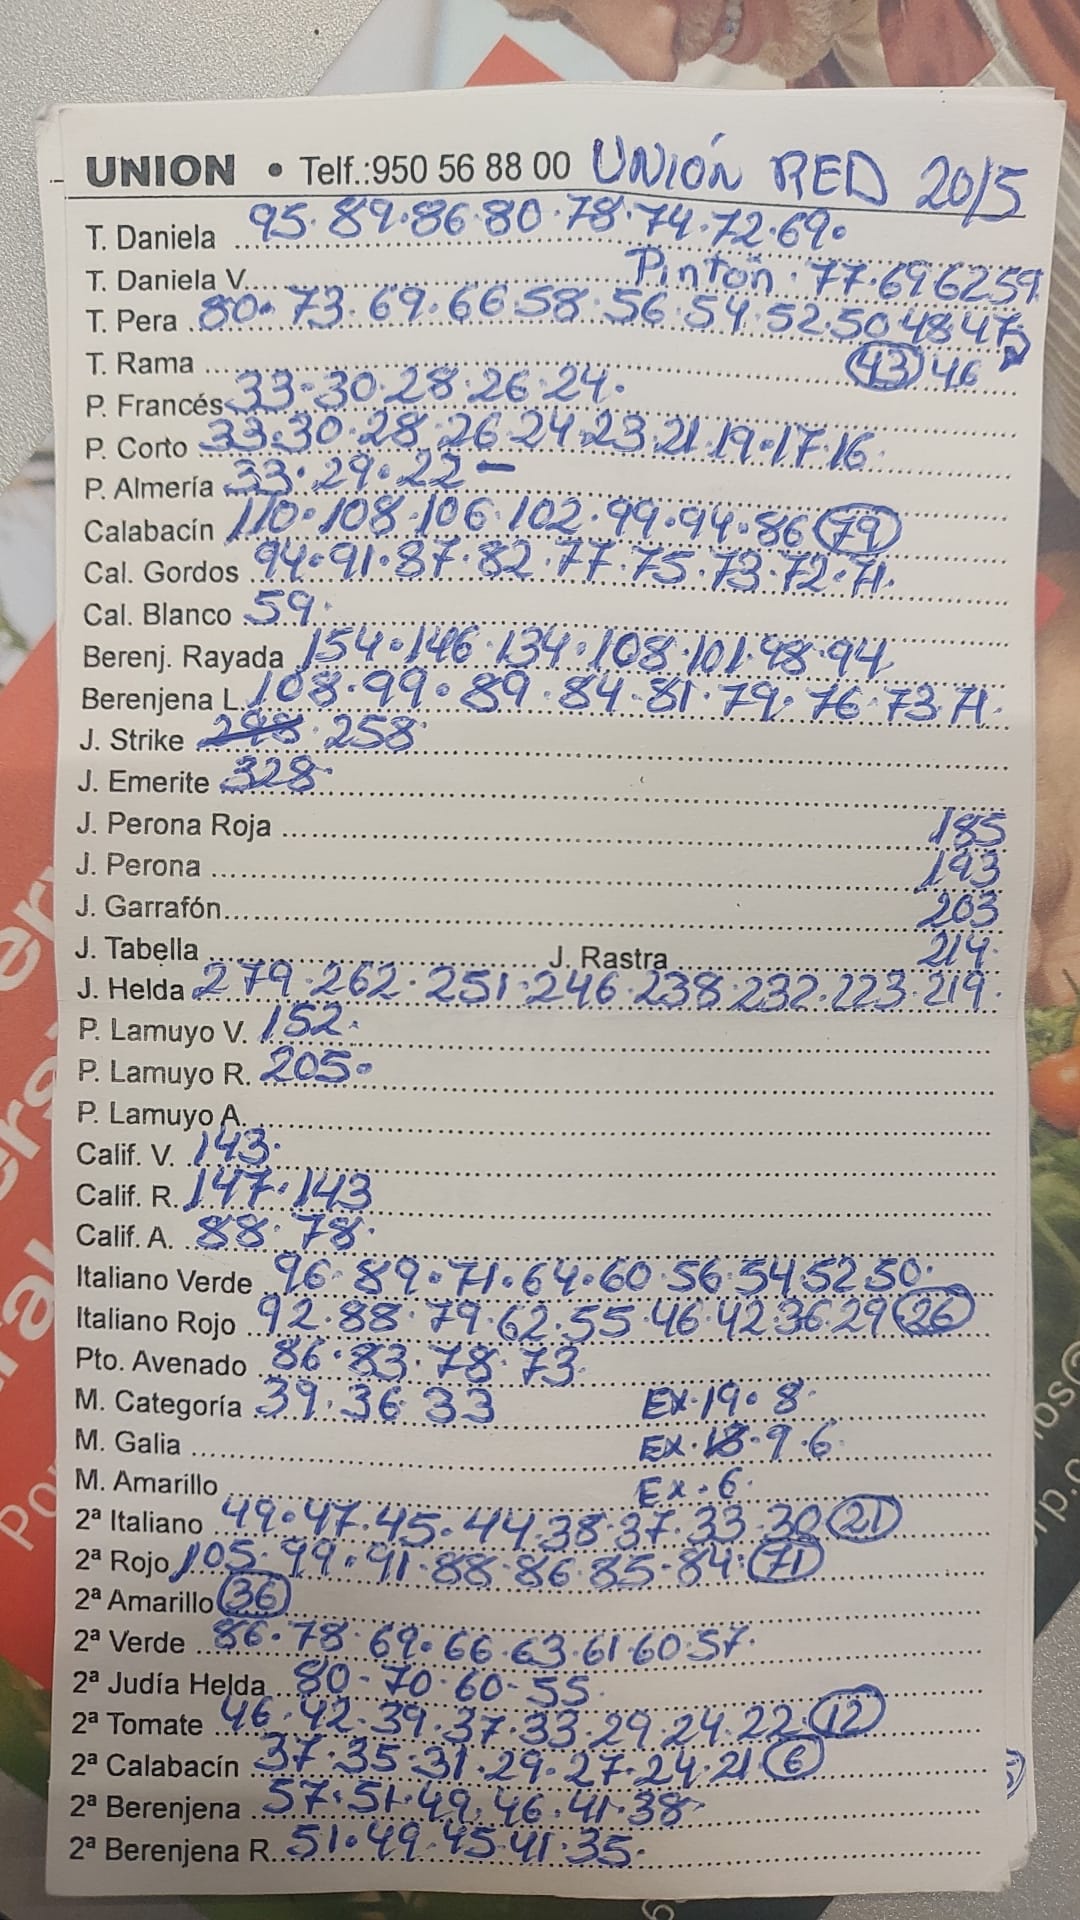 UNION • Telf.:950 56 88 00 UNIÓN RED 20/5
T. Daniela 95·89·86·80·78·74·72·69·
T. Daniela V. Pintón·77·69 62 59
T. Pera 80·73·69·66 58·56·54·52 50 48 47
T. Rama 43 46
P. Francés 33·30·28·26·24·
P. Corto 33·30·28·26·24·23 21·19·17·16
P. Almería 33·29·22-
Calabacín 110·108·106·102·99·94·86 79
Cal. Gordos 94·91·87·82·77·75·73·72·71·
Cal. Blanco 59·
Berenj. Rayada 154·146·134·108·101·98·94
Berenjena L. 108·99·89·84·81·79·76·73 71·
J. Strike 298·258
J. Emerite 328
J. Perona Roja 185
J. Perona 193
J. Garrafón 203
J. Tabella J. Rastra 214·
J. Helda 279·262·251·246·238·232·223·219·
P. Lamuyo V. 152·
P. Lamuyo R. 205·
P. Lamuyo A.
Calif. V. 143·
Calif. R. 147·143
Calif. A. 88·78·
Italiano Verde 96·89·71·64·60·56·54 52 50·
Italiano Rojo 92·88·79·62·55·46·42·36·29 26
Pto. Avenado 86·83·78·73
M. Categoría 39·36 33 EX·19·8·
M. Galia EX·18·9·6
M. Amarillo Ex·6·
2ª Italiano 49·47·45·44·38·37·33·30 21
2ª Rojo 105·99·91·88·86·85·84·71
2ª Amarillo 36
2ª Verde 86·78·69·66·63·61 60·57·
2ª Judía Helda 80-70·60-55
2ª Tomate 46·42·39·37·33·29·24·22·12
2ª Calabacín 37·35·31·29·27·24·21 6
2ª Berenjena 57·51·49·46·41·38
2ª Berenjena R. 51·49·45·41·35·